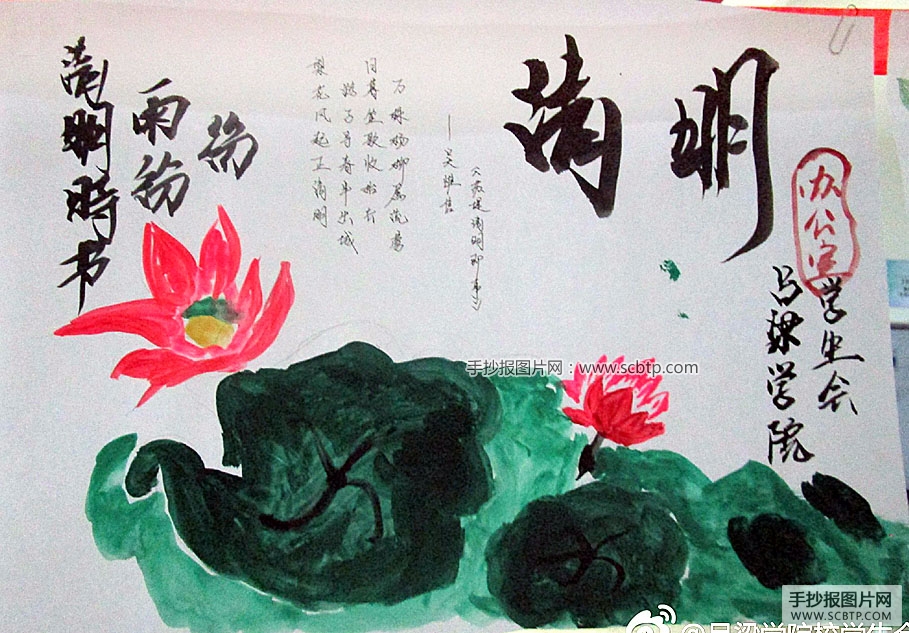 清明
清明時节
雨纷
纷
梨花风起正清明
游子寻春半出城
日暮笙歌收
万株杨柳属流莺
——吴惟信
《苏堤清明即事》
吕梁学院
学生会
办公室
手抄报图片网：www.scbtp.com
手抄报图片网
WWW.SCBTP.COM
@吕梁学院校学生会